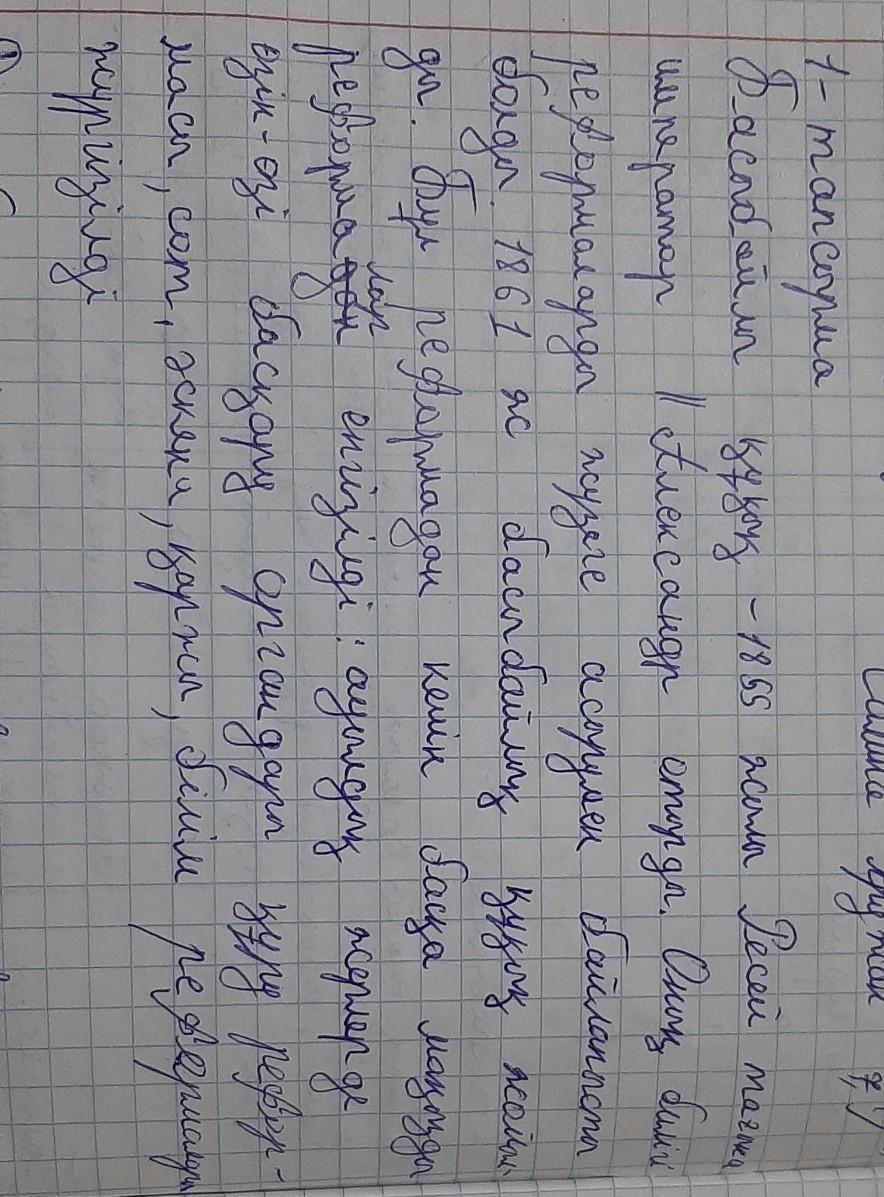 1-тапсырма
Басыбайлы құқық - 1855 жылы Ресей тағына
император II Александр отырды. Оның билі
реформаларды жүзеге асырумен байланысты
болды. 1861 яс басыбайлық құқық жойыл
ды. Бұл реформадан кейін басқа маңызды
реформалар енгізілді: ауылдық жерлерде
өзін-өзі басқару органдары құру рефор-
масы, сот, әскери, қаржы, білім реформалары
жүргізілді